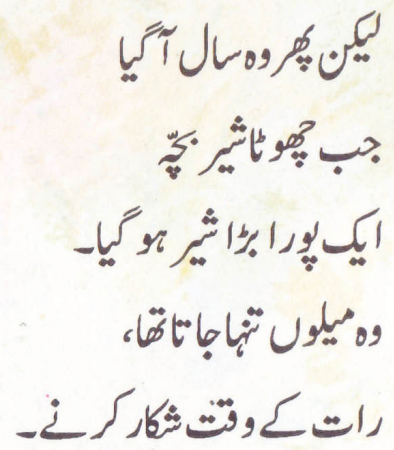 لیکن پھر وہ سال آ گیا
جب چھوٹا شیر بچّہ
ایک پورا بڑا شیر ہو گیا۔
وہ میلوں تنہا جاتا تھا،
رات کے وقت شکار کرنے۔